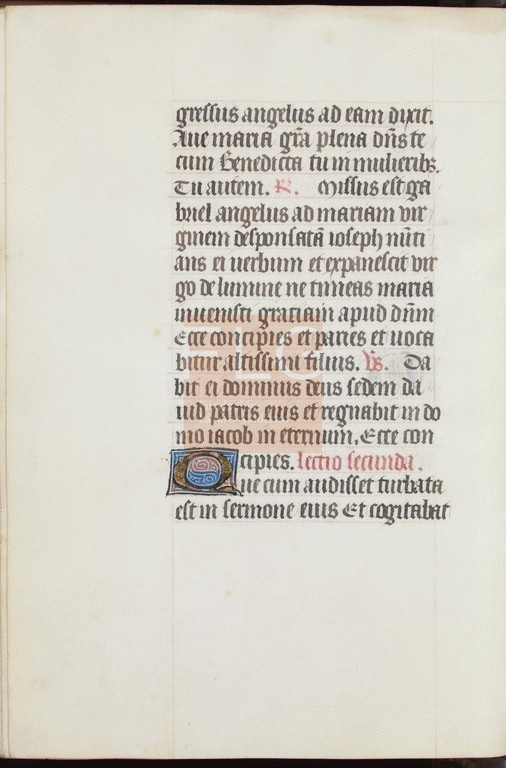 gressus angelus ad eam dixit.
Aue maria gr̄a plena dn̄s te
cum Benedicta tu in mulieribꝫ.
Tu autem. R̷. Missus est ga
briel angelus ad mariam vir
ginem desponsatā ioseph nūti
ans ei uerbum et expauescit vir
go de lumine ne timeas maria
inuenisti graciam apud dn̄m
Ecce concipies et paries et uoca
bitur altissimi filius. V̷s. Da
bit ei dominus deus sedem da
uid patris eius et regnabit in do
mo iacob in eternum, Ecce con
cipies. lectio secunda.
Que cum audisset turbata
est in sermone eius Et cogitabat